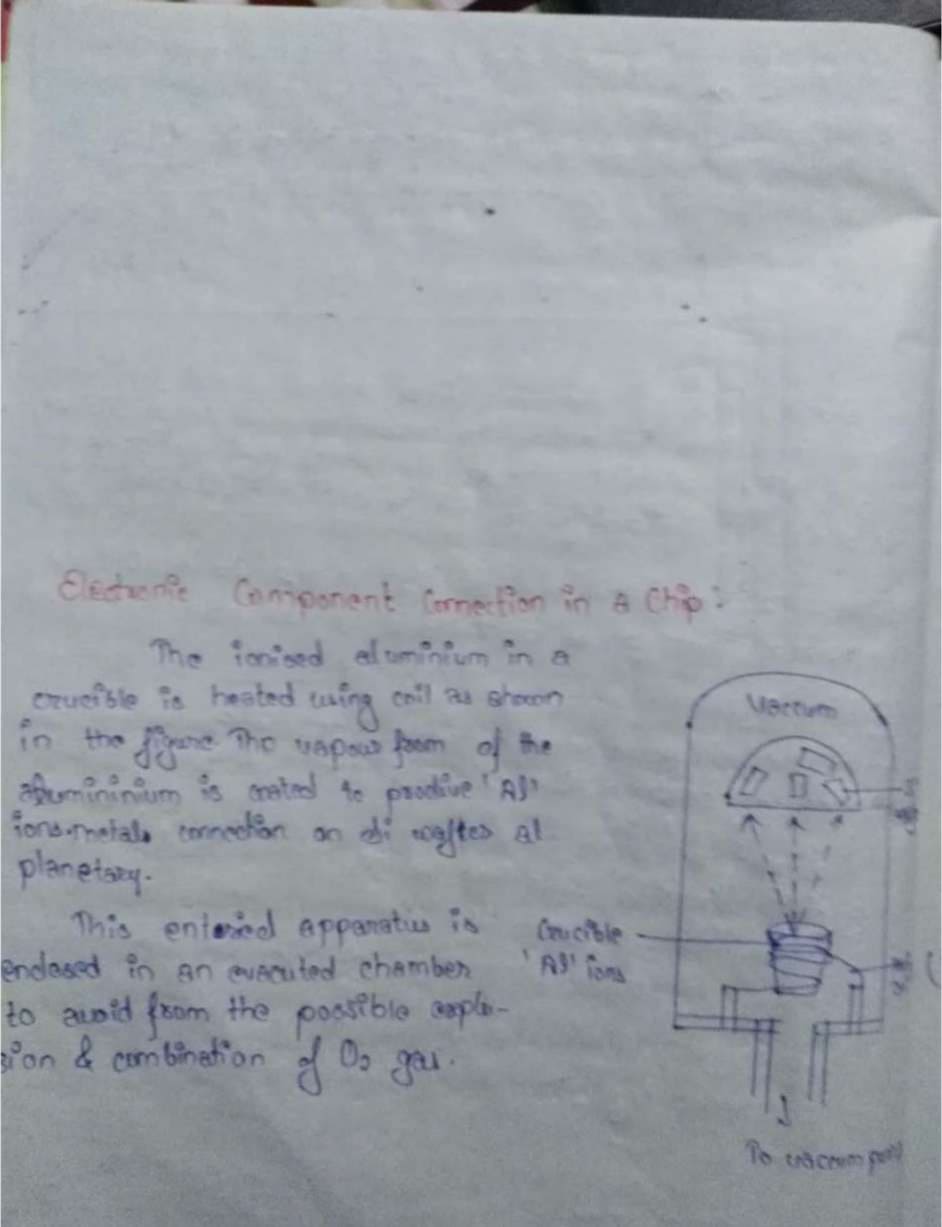 Electronic Component Connection in a Chip:
The ionised aluminium in a
crucible is heated using coil as shown
in the figure. The vapour from of the
alumininium is to 'Al'
ions. metals connection on si at
planetary.
This apparatus is
enclosed in an chamber
to avoid from the possible explo-
sion & combination of O₂ gas.
Vaccum
Crucible
'Al' ions
To vaccum